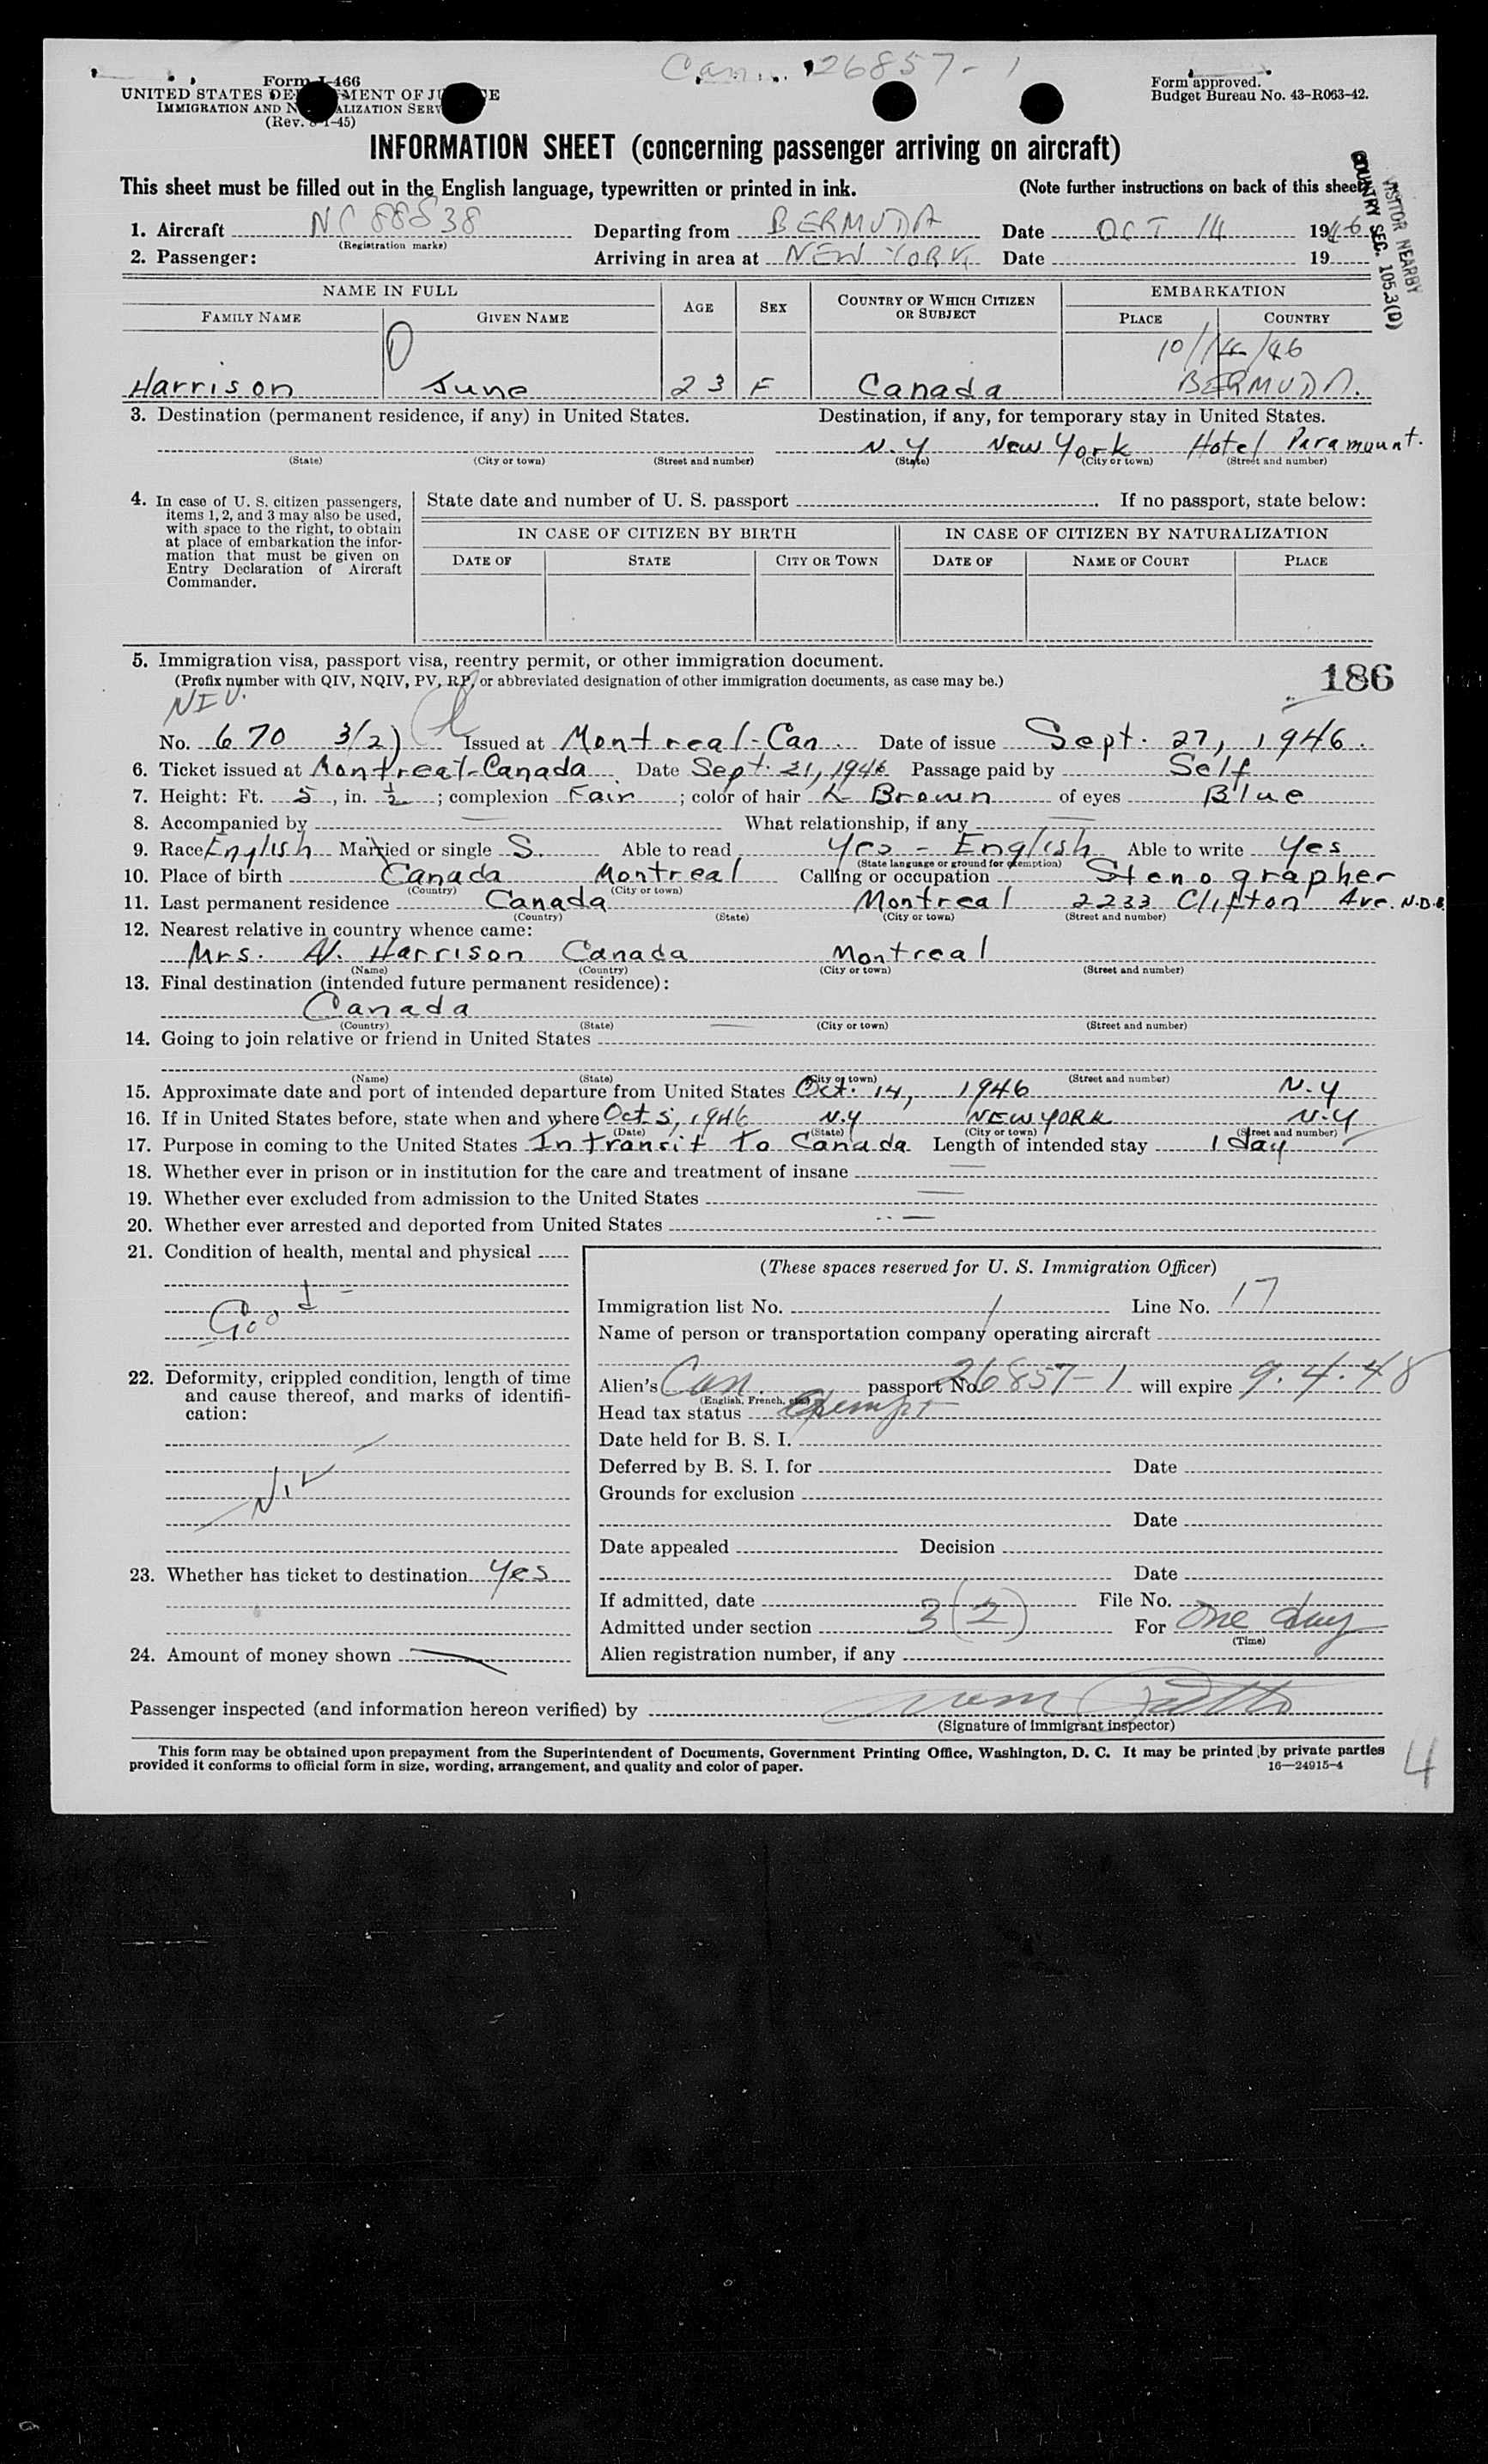 Can. 26857-1
Form I-466
UNITED STATES DE MENT OF JU E
IMMIGRATION AND N ALIZATION SERV
(Rev. -1-45)
Form approved.
Budget Bureau No. 43-R063-42.
INFORMATION SHEET (concerning passenger arriving on aircraft)
This sheet must be filled out in the English language, typewritten or printed in ink. (Note further instructions on back of this sheet
VISITOR NEARBY
COUNTRY SEC. 105.3(D)
1. Aircraft NC 88838 Departing from BERMUDA Date OCT 14 1946
(Registration marks)
2. Passenger: Arriving in area at NEW YORK Date 19
NAME IN FULL AGE SEX COUNTRY OF WHICH CITIZEN OR SUBJECT EMBARKATION
FAMILY NAME GIVEN NAME PLACE COUNTRY
10/14/46
Harrison June 23 F Canada BERMUDA.
3. Destination (permanent residence, if any) in United States. Destination, if any, for temporary stay in United States.
N.Y New York Hotel Paramount.
(State) (City or town) (Street and number) (State) (City or town) (Street and number)
4. In case of U. S. citizen passengers, items 1, 2, and 3 may also be used, with space to the right, to obtain at place of embarkation the information that must be given on Entry Declaration of Aircraft Commander.
State date and number of U. S. passport . If no passport, state below:
IN CASE OF CITIZEN BY BIRTH IN CASE OF CITIZEN BY NATURALIZATION
DATE OF STATE CITY OR TOWN DATE OF NAME OF COURT PLACE
5. Immigration visa, passport visa, reentry permit, or other immigration document.
(Prefix number with QIV, NQIV, PV, RP, or abbreviated designation of other immigration documents, as case may be.)
186
NIV.
No. 670 3/2) Issued at Montreal-Can. Date of issue Sept. 27, 1946.
6. Ticket issued at Montreal-Canada Date Sept. 21, 1946 Passage paid by Self
7. Height: Ft. 5, in. ½; complexion Fair; color of hair L Brown of eyes Blue
8. Accompanied by — What relationship, if any —
9. Race English Married or single S. Able to read Yes - English Able to write Yes
(State language or ground for exemption)
10. Place of birth Canada Montreal Calling or occupation Stenographer
(Country) (City or town)
11. Last permanent residence Canada Montreal 2233 Clifton Ave. N.D.G
(Country) (State) (City or town) (Street and number)
12. Nearest relative in country whence came:
Mrs. N. Harrison Canada Montreal
(Name) (Country) (City or town) (Street and number)
13. Final destination (intended future permanent residence):
Canada
(Country) (State) (City or town) (Street and number)
14. Going to join relative or friend in United States —
(Name) (State) (City or town) (Street and number)
15. Approximate date and port of intended departure from United States Oct. 14, 1946 N.Y
16. If in United States before, state when and where Oct 5, 1946 N.Y NEW YORK N.Y
(Date) (State) (City or town) (Street and number)
17. Purpose in coming to the United States In transit to Canada Length of intended stay 1 day
18. Whether ever in prison or in institution for the care and treatment of insane —
19. Whether ever excluded from admission to the United States —
20. Whether ever arrested and deported from United States —
21. Condition of health, mental and physical
Good
22. Deformity, crippled condition, length of time and cause thereof, and marks of identification:
23. Whether has ticket to destination Yes
24. Amount of money shown —
(These spaces reserved for U. S. Immigration Officer)
Immigration list No. 1 Line No. 17
Name of person or transportation company operating aircraft
Alien's Can. passport No. 26857-1 will expire 9.4.48
(English, French, etc.)
Head tax status Exempt
Date held for B. S. I.
Deferred by B. S. I. for Date
Grounds for exclusion
Date
Date appealed Decision
Date
If admitted, date File No.
Admitted under section 3(2) For One day
(Time)
Alien registration number, if any
Passenger inspected (and information hereon verified) by
(Signature of immigrant inspector)
This form may be obtained upon prepayment from the Superintendent of Documents, Government Printing Office, Washington, D. C. It may be printed by private parties
provided it conforms to official form in size, wording, arrangement, and quality and color of paper. 16—24915-4
4